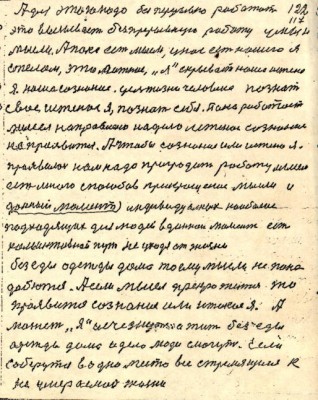 А для этого надо беспрерывно работать 122
117
это вызывает беспрерывную работу ума и
мысли. А пока есть мысли, у нас есть наше я
с телом, это мотание, "я" скрывает наше истено
я. наше сознание. цель жизни человека познать
свое истеное я, познать себя. пока работает
мысль направлено на дело истеное сознание
не проявится. А чтобы сознание или истено я
проявилось нам надо прекродить работу мысли
есть много способов прикращение мысли и
данный момент) индивидуальных наиболее
подходящих для людей в данном моменте есть
коллективной путь не уходя от жизни
без еды одежды дома тогда мысль не пона
добится. А если мысль прекротится то
проявится сознание или истеное я. А
может "я" исчезнуть а жить без еды
одежды дома и дело люди смогут. Если
соберутся в одно место все стремящиеся к
не умераемой жизни